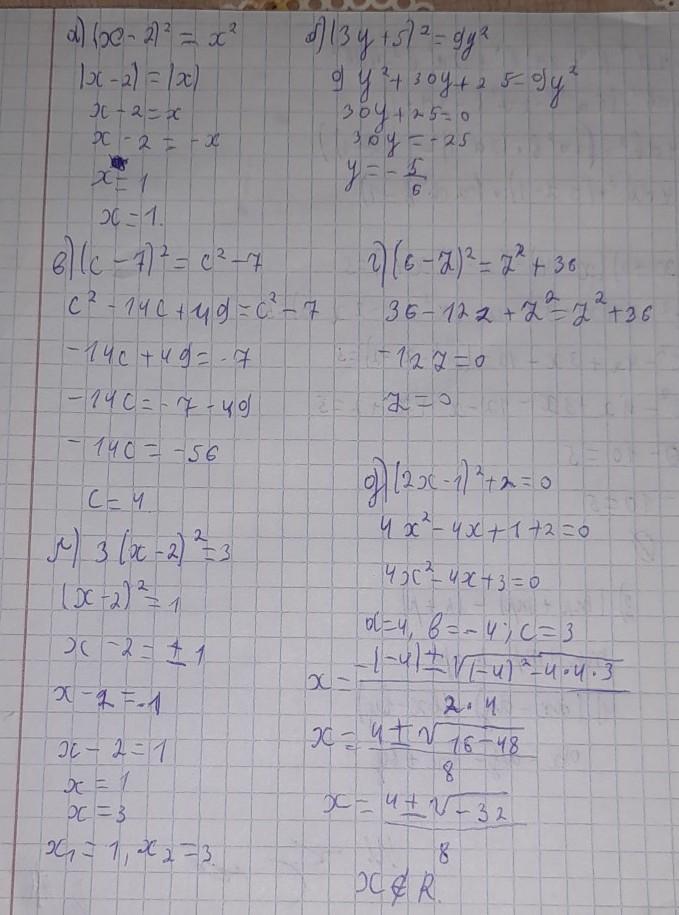 а) (x - 2)² = x²
|x - 2| = |x|
x - 2 = x
x - 2 = - x
x = 1
x = 1.
б) (3y + 5)² = 9y²
9y² + 30y + 25 = 9y²
30y + 25 = 0
30y = -25
y = - 5/6
в) (c - 7)² = c² - 7
c² - 14c + 49 = c² - 7
- 14c + 49 = - 7
- 14c = - 7 - 49
- 14c = - 56
c = 4
г) (6 - z)² = z² + 36
36 - 12z + z² = z² + 36
- 12z = 0
z = 0
д) (2x - 1)² + 2 = 0
4x² - 4x + 1 + 2 = 0
4x² - 4x + 3 = 0
a = 4, b = - 4; c = 3
x = -(-4) ± √(-4)² - 4·4·3 / 2·4
x = 4 ± √16 - 48 / 8
x = 4 ± √-32 / 8
x ∉ R.
3 (x - 2)² = 3
(x - 2)² = 1
x - 2 = ± 1
x - 2 = - 1
x - 2 = 1
x = 1
x = 3
x₁ = 1, x₂ = 3